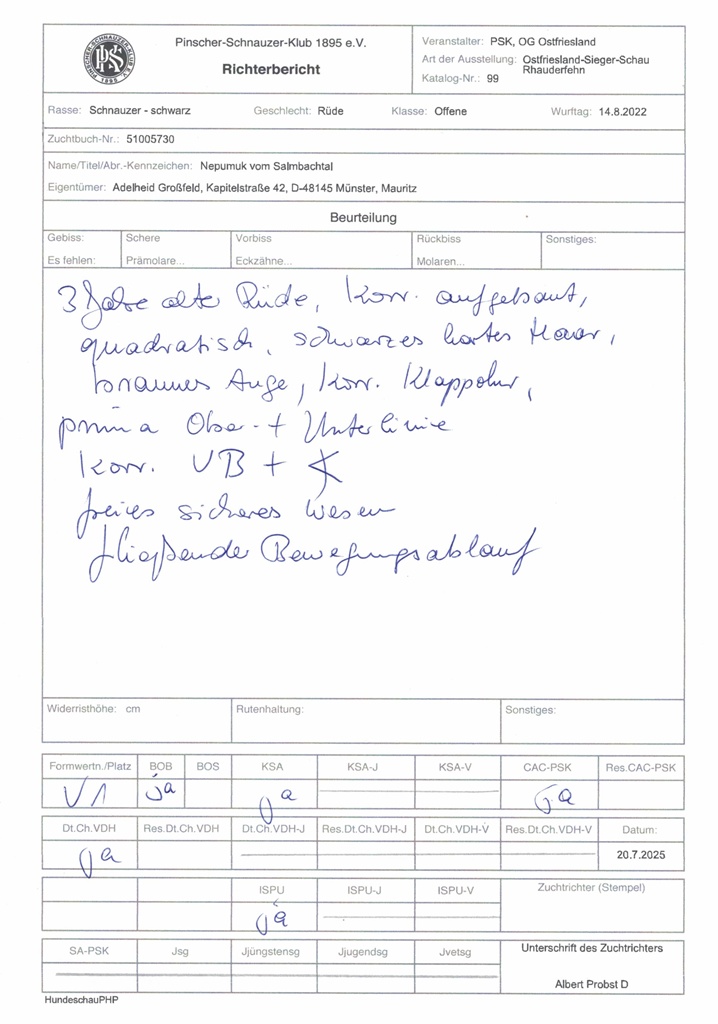 PINSCHER-SCHNAUZER-KLUB E.V.
PSK
1895
Pinscher-Schnauzer-Klub 1895 e.V.
Richterbericht
Veranstalter: PSK, OG Ostfriesland
Art der Ausstellung: Ostfriesland-Sieger-Schau
Rhauderfehn
Katalog-Nr.: 99
Rasse: Schnauzer - schwarz Geschlecht: Rüde Klasse: Offene Wurftag: 14.8.2022
Zuchtbuch-Nr.: 51005730
Name/Titel/Abr.-Kennzeichen: Nepumuk vom Salmbachtal
Eigentümer: Adelheid Großfeld, Kapitelstraße 42, D-48145 Münster, Mauritz
Beurteilung
Gebiss: Schere Vorbiss Rückbiss Sonstiges:
Es fehlen: Prämolare... Eckzähne... Molaren...
3 Jahre alter Rüde, korr. aufgebaut,
quadratisch, schwarzes hartes Haar,
braunes Auge, korr. Klappohr,
prima Ober- + Unterlinie
korr. VB +
freies sicheres Wesen
fließender Bewegungsablauf
Widerristhöhe: cm Rutenhaltung: Sonstiges:
Formwertn./Platz BOB BOS KSA KSA-J KSA-V CAC-PSK Res.CAC-PSK
V1 ja ja ja
Dt.Ch.VDH Res.Dt.Ch.VDH Dt.Ch.VDH-J Res.Dt.Ch.VDH-J Dt.Ch.VDH-V Res.Dt.Ch.VDH-V Datum:
ja 20.7.2025
ISPU ISPU-J ISPU-V Zuchtrichter (Stempel)
ja
SA-PSK Jsg Jjüngstensg Jjugendsg Jvetsg Unterschrift des Zuchtrichters
Albert Probst D
HundeschauPHP